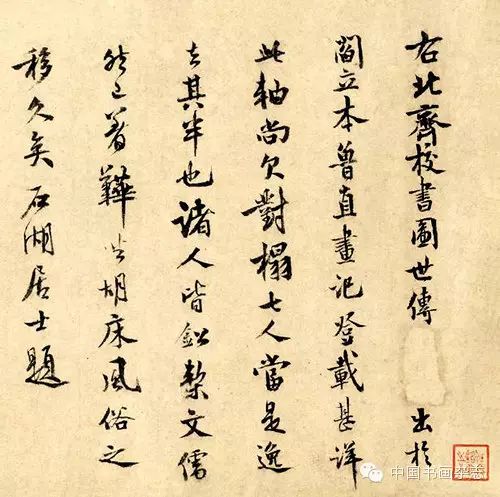 右北齊校書圖世傳出於
閻立本魯直畫記登載甚詳
此軸尚欠對榻七人當是逸
去其半也諸人皆鉛槧文儒
然已著鞾坐胡床風俗之
移久矣石湖居士題
中国书画杂志